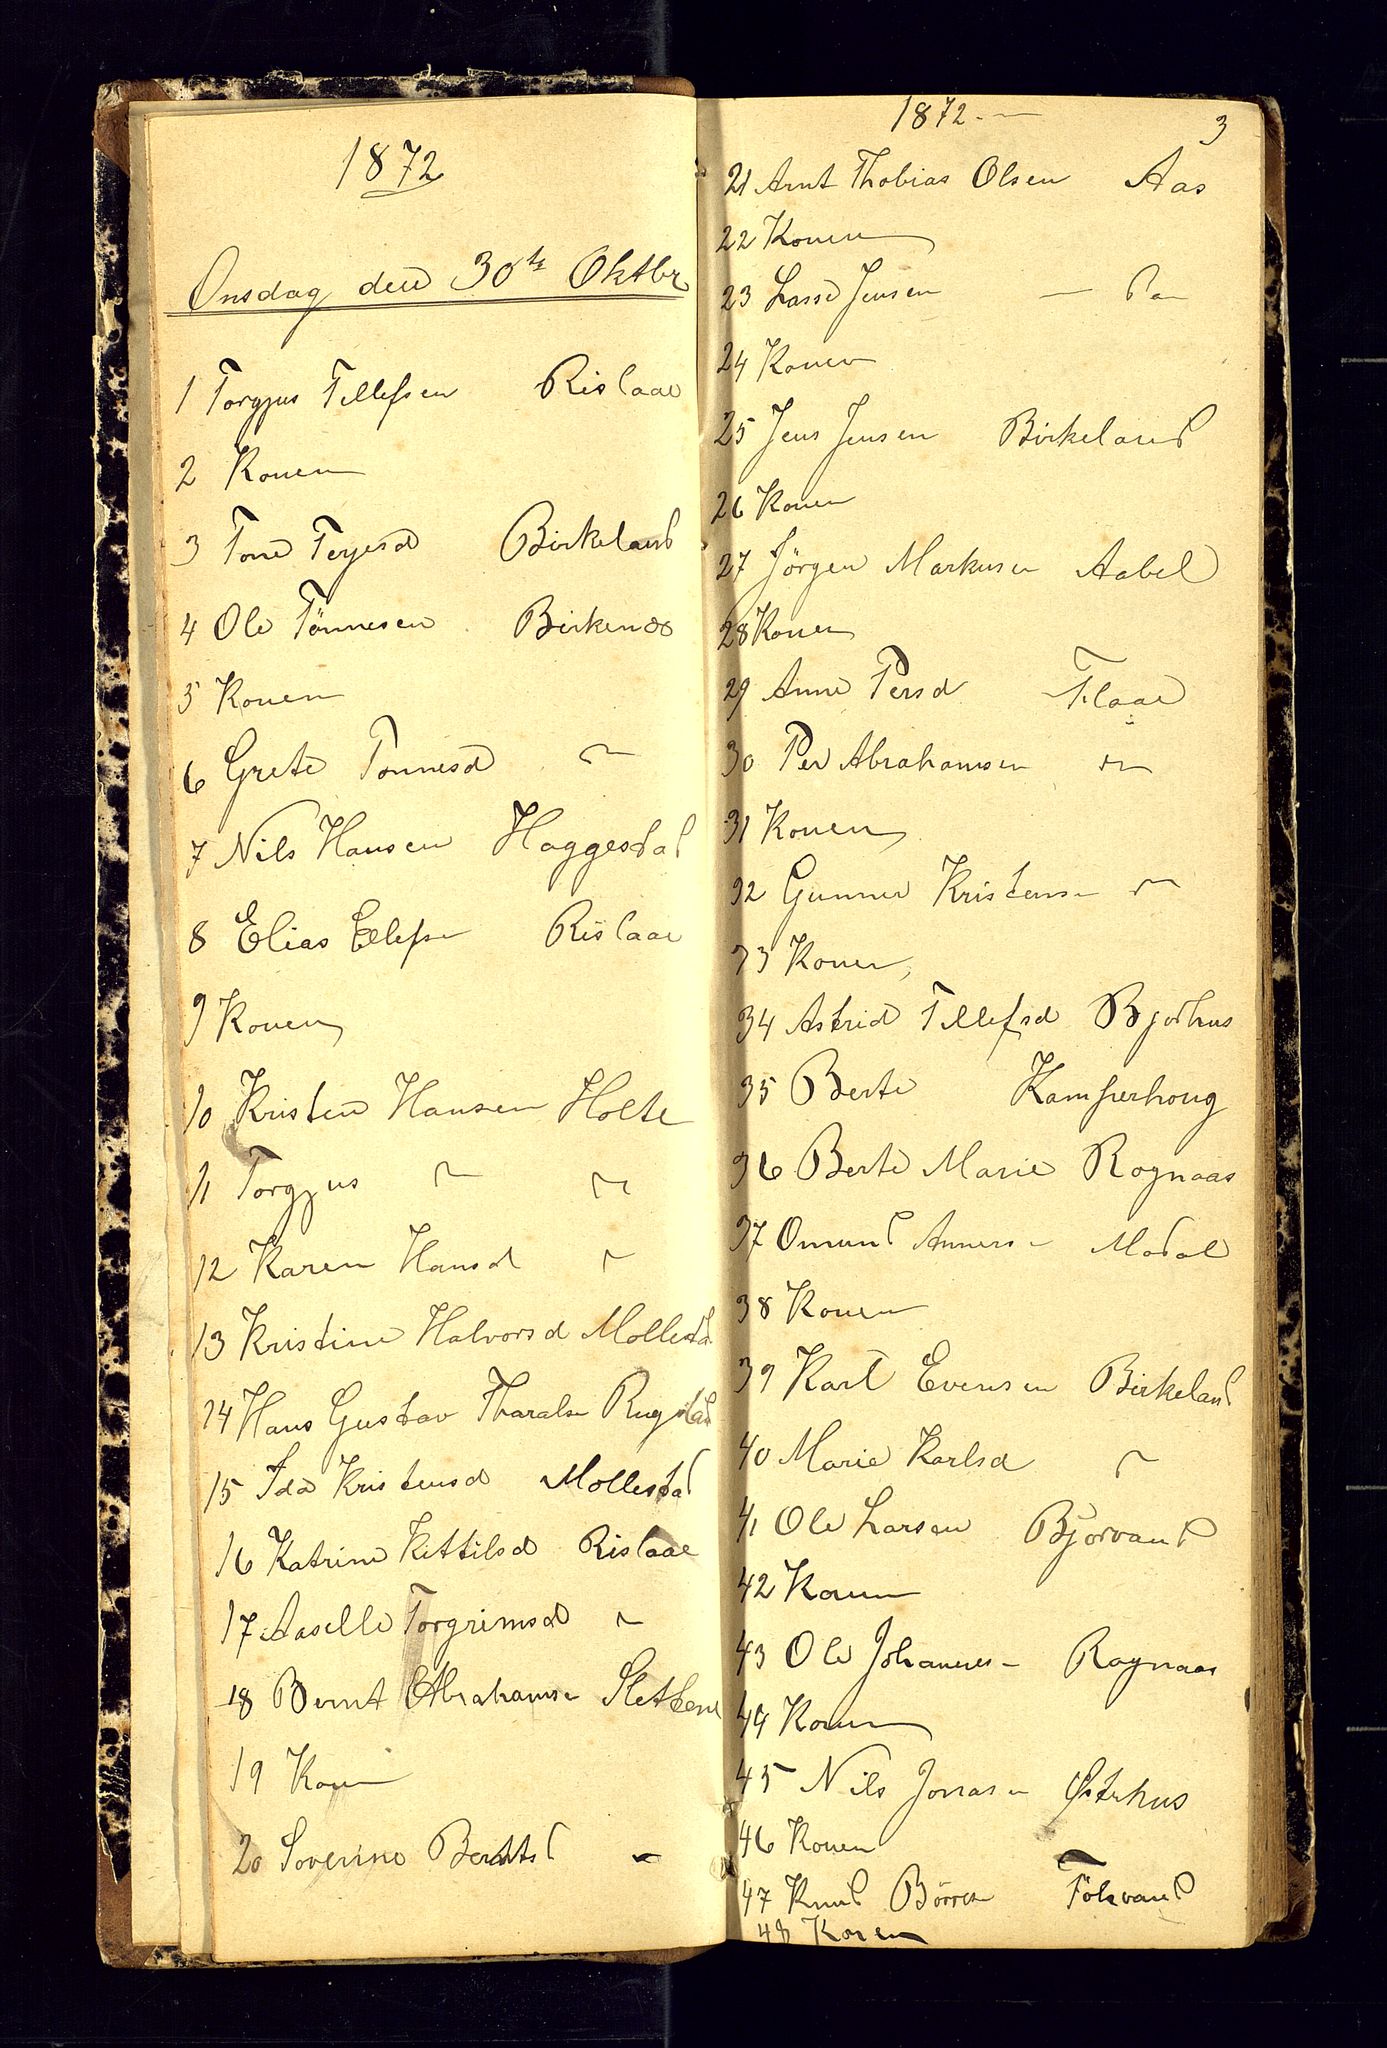 1872
Onsdag den 30te Oktbr
1 Torgjus Tellefsen Rislaae
2 Konen
3 Tone Terjesd Birkeland
4 Ole Tönnesen Birkenæs
5 Konen
6 Grete Tönnesd "
7 Nils Hansen Haggestal
8 Elias Ellefsen Rislaae
9 Konen
10 Kristen Hansen Holte
11 Torgjus " "
12 Karen Hansd "
13 Kristine Halvorsd Mollestad
14 Hans Gustav Tharalsen Rugslad
15 Ida Kristensd Mollestad
16 Katrine Kittilsd Rislaae
17 Aaselle Torgrimsd "
18 Bernt Abrahamsen
19 Konen
20 Soverine Berntsd "
1872 3
21 Arnt Thobias Olsen Aas
22 Konen
23 Lasse Jensen
24 Konen
25 Jens Jensen Birkeland
26 Konen
27 Jörgen Markusen Aabel
28 Konen
29 Anne Persd Flaae
30 Per Abrahamsen "
31 Konen
32 Gunner Kristensen "
33 Konen
34 Astrid Tellefsd Bjorhus
35 Berte Kamperhoug
36 Berte Marie Rognaas
37 Omund Annersen Modal
38 Konen
39 Karl Evensen Birkeland
40 Marie Karlsd "
41 Ole Larsen Bjorvand
42 Konen
43 Ole Johannesen Rognaas
44 Konen
45 Nils Jonasen Østerhus
46 Konen
47 Knud Börresen
48 Konen